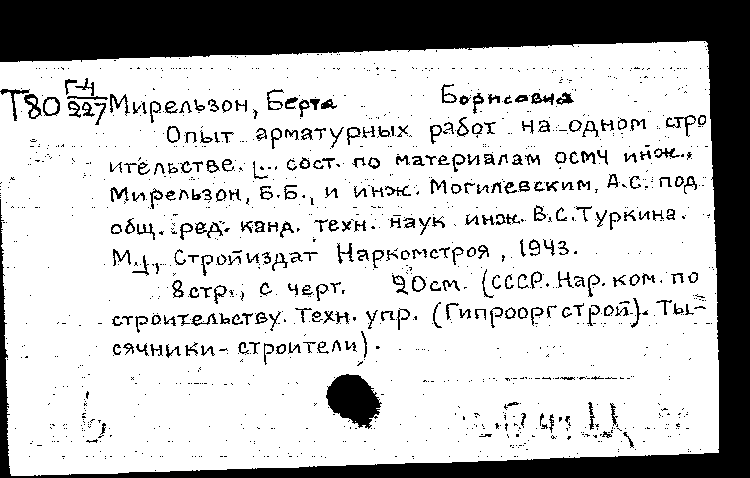 Т80 Г-4/227 Мирельзон, Берта Борисовна
Опыт арматурных работ на одном стро
ительстве. [... сост. по материалам осмч инж.,
Мирельзон, Б.Б., и инж. Могилевским, А.С. под
общ. ред. канд. техн. наук инж. В.С. Туркина.
М., Стройиздат Наркомстроя, 1943.
8 стр., с черт. 20 см. (СССР. Нар. ком. по
строительству. Техн. упр. (Гипрооргстрой). Ты-
сячники-строители).